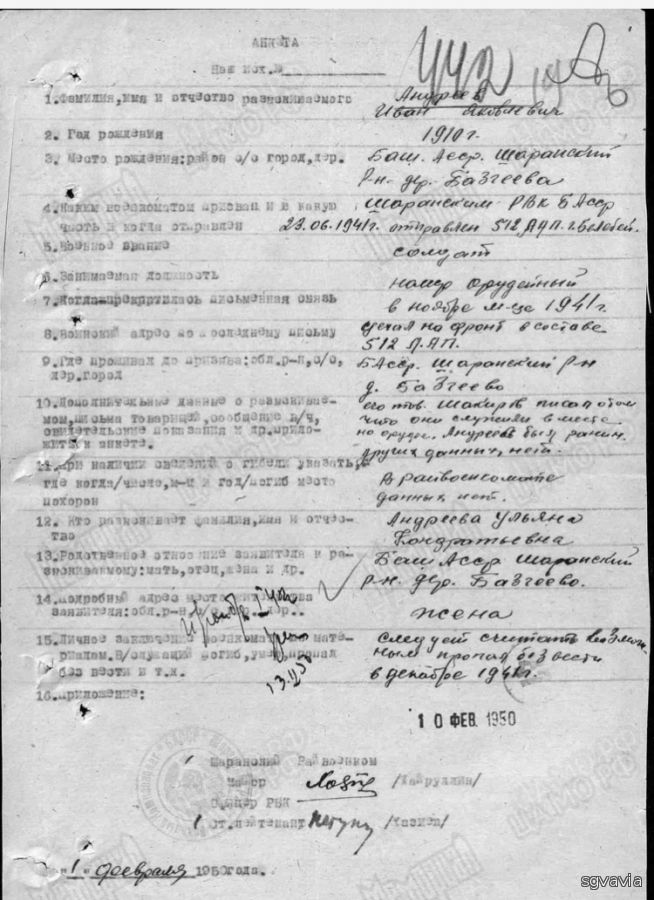 АНКЕТА
Наш исх.№
442
1.Фамилия,имя и отчество разыскиваемого Андреев
Иван Яковлевич
2. Год рождения 1910 г.
3. Место рождения:район с/с город,дер. Баш. Асср. Шаранский
Р-н. дер. Базгеева
4. Каким военкоматом призван и в какую Шаранским РВК БАсср
часть и когда отправлен 23.06.1941г. отправлен 512 АП. г.Белебей.
5. Военное звание солдат
6. Занимаемая должность номер орудейный
7. Когда прекратилась письменная связь в ноябре м-це 1941 г.
8. Воинский адрес по последнему письму уехал на фронт в составе
512 АП.
9. Где проживал до призыва:обл.р-н,с/с, БАсср. Шаранский Р-н
дер.город д. Базгеево
10.Дополнительные данные о разыскивае- его тов. Шакиров писал о том
мом,письма товарищей,сообщение в/ч, что они служили вместе
свидетельские показания и др.прило- на орудие. Андреев был ранен.
жить к анкете. других данных нет.
11.При наличии сведений о гибели указать,
где когда/число,м-ц и год/погиб место В райвоенкомате
похорон данных нет.
12. Кто разыскивает фамилия,имя и отчес- Андреева Ульяна
тво Кондратьевна
13.Родственное отношение заявителя к ра- Баш Асср Шаранский
зыскиваемому:мать,отец,жена и др. р-н. дер. Базгеево.
14. Подробный адрес местожительства
заявителя:обл.р-н. дер.. жена
15. Личное заключение военкома по мате- следует считать возмож-
риалам.В/служащий погиб,умер,пропал ным пропал без вести
без вести и т.п. в декабре 1941 г.
16.Приложение:
10 ФЕВ 1950
Шаранский Райвоенком
Майор /Хайруллин/
РВК
Ст.лейтенант
"1" февраля 1950года.
sgvavia